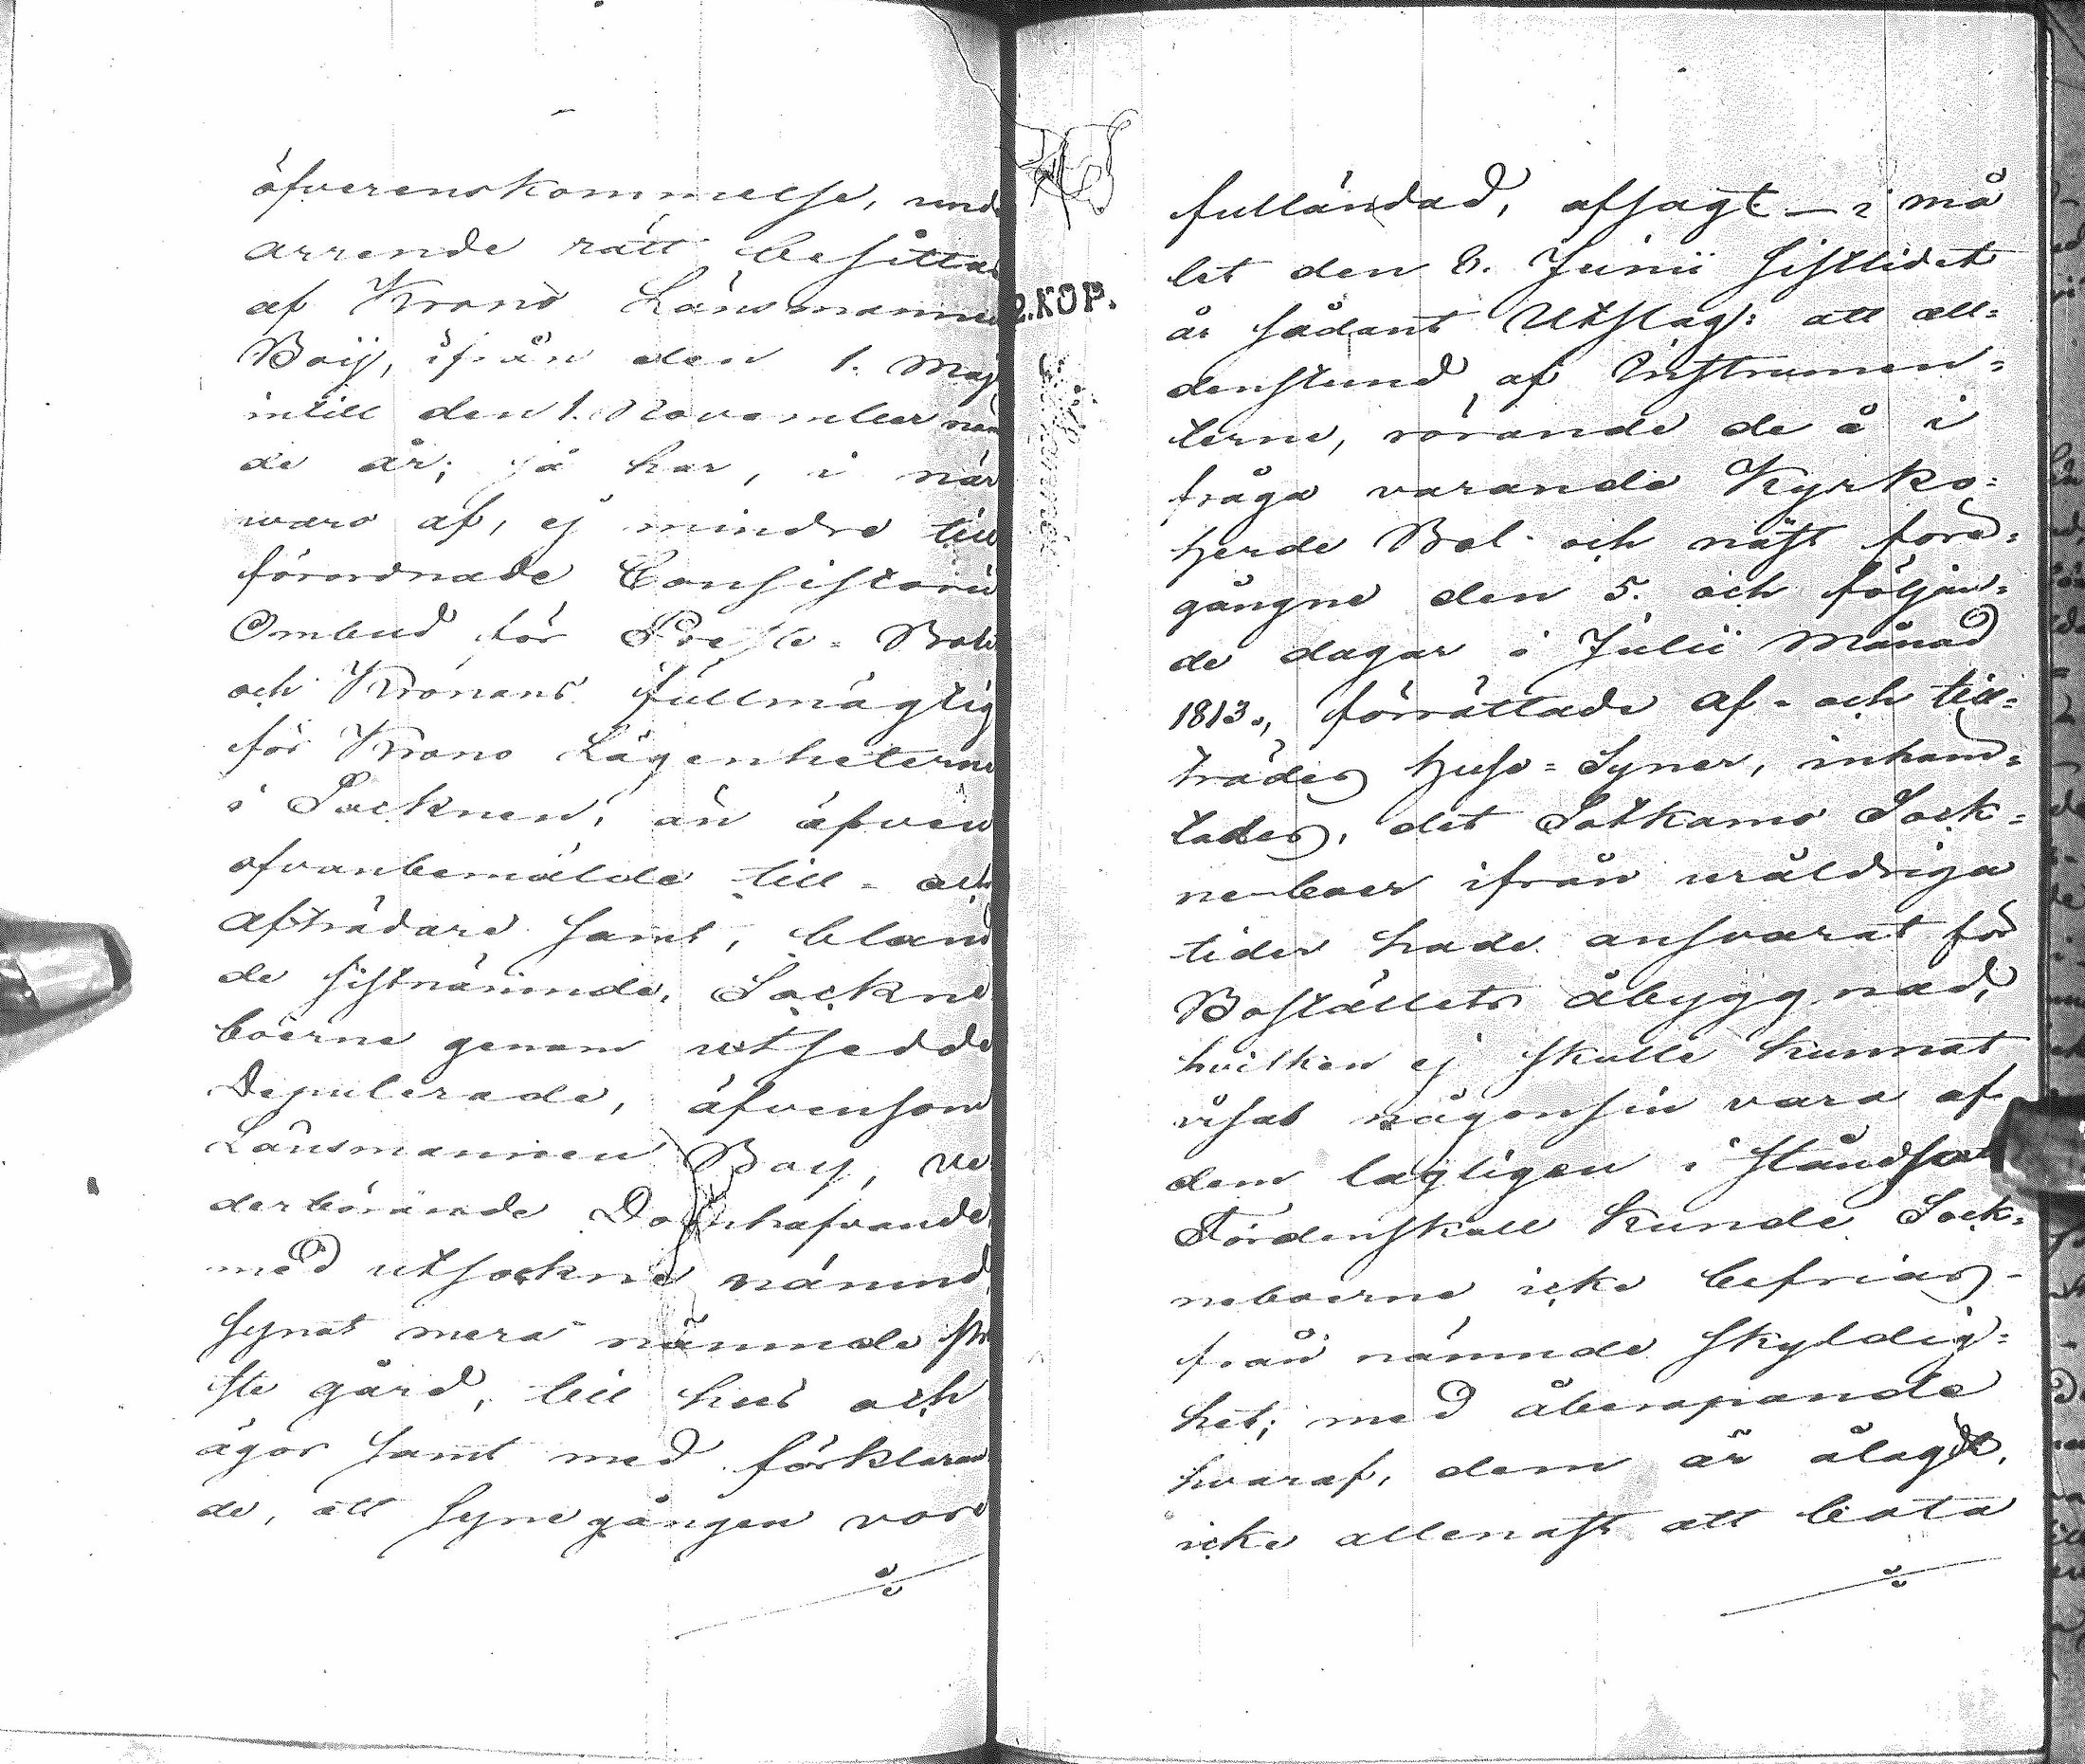 öfverenskommelse, und
arrende rätt besittas
af Krono Länsmannen
Boij, ifrån den 1. Maji
intill den 1. November näm
de år; så har, i när
waro af, ej mindre till
förordnade Consistorii
Ombud för Preste-Bole
och Kronans fullmägtig
för Krono Lägenheterne
i Socknen, än äfven
ofvanbemälde till- och
afträdare samt, bland
de sistnämnde, Sockne
boerne genom utsedde
Deputerade, äfvensom
Länsmannen Boy, ve
derbörande Domhafvande
med utsockne nämnd,
synat mera nämnde
ste gård, till hus och
ägor samt med förklaran
de, att synegången vore
./.
2.KOP.
fulländad, afsagt – i må
let den 8. Junii sistlidet
år sådant Utslag: att all=
denstund af Instrumen=
terne, rörande de å i
fråga varande Kyrko=
herde Bol och näst före=
gångne den 5. och följan=
de dagar i Julii Månad
1813., förrättade af- och till=
trädes Huse-Syner, inhäm=
tades, det Sotkamo Sock=
neboer ifrån uråldriga
tider hade ansvarat för
Boställets åbyggnad,
hvilken ej skulle kunnat
visas någonsin vara af
dem lagligen i ståndsatt
Tördenskull kunde Sock=
neboerne icke befrias
från nämnde skyldig=
het; med åberopande
hvaraf, dem är ålagdt,
icke allenast att bota
./.